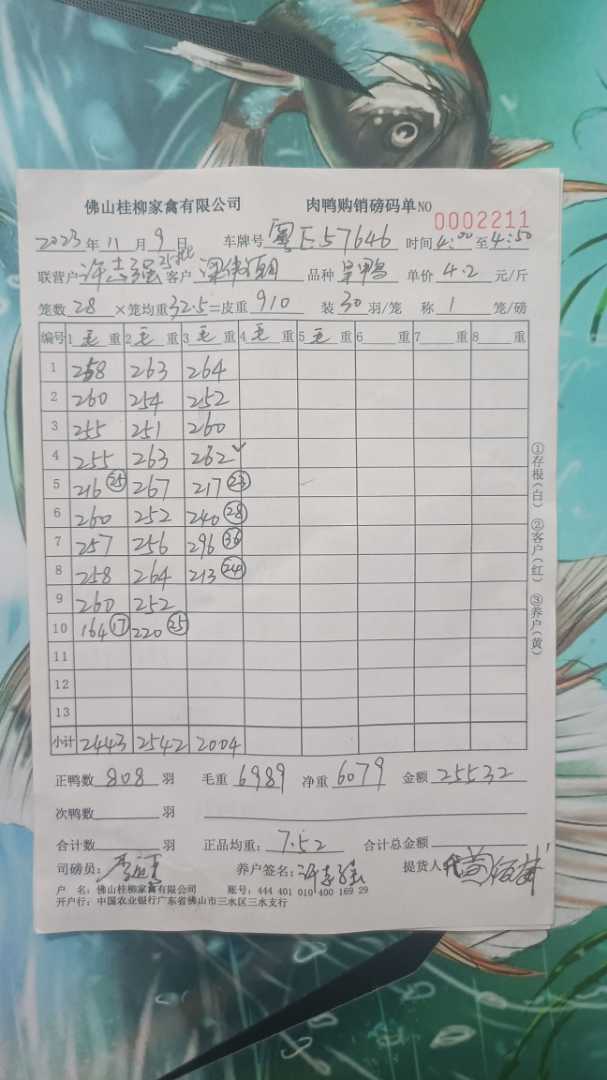 佛山桂柳家禽有限公司 肉鸭购销磅码单 NO 0002211
2023年 11月 9日 车牌号 粤E.57646 时间 4:00 至 4:50
联营户 许志强 25批 客户 品种 单价 4.2 元/斤
笼数 28 ×笼均重 32.5 =皮重 910 装 30 羽/笼 称 1 笼/磅
编号 1 毛 重 2 毛 重 3 毛 重 4 毛 重 5 毛 重 6 重 7 重 8 重
1 258 263 264
2 260 254 252
3 255 251 260
4 255 263 262
5 216 (25) 267 217 (23)
6 260 252 240 (28)
7 257 256 296 (36)
8 258 264 213 (24)
9 260 252
10 164 (17) 220 (25)
11
12
13
小计 2443 2542 2004
正鸭数 808 羽 毛重 6989 净重 6079 金额 25532
次鸭数 羽
合计数 羽 正品均重: 7.52 合计总金额
司磅员: 养户签名: 许志强 提货人
户 名: 佛山桂柳家禽有限公司 账号: 444 401 010 400 169 29
开户行: 中国农业银行广东省佛山市三水区三水支行
①存根(白) ②客户(红) ③养户(黄)